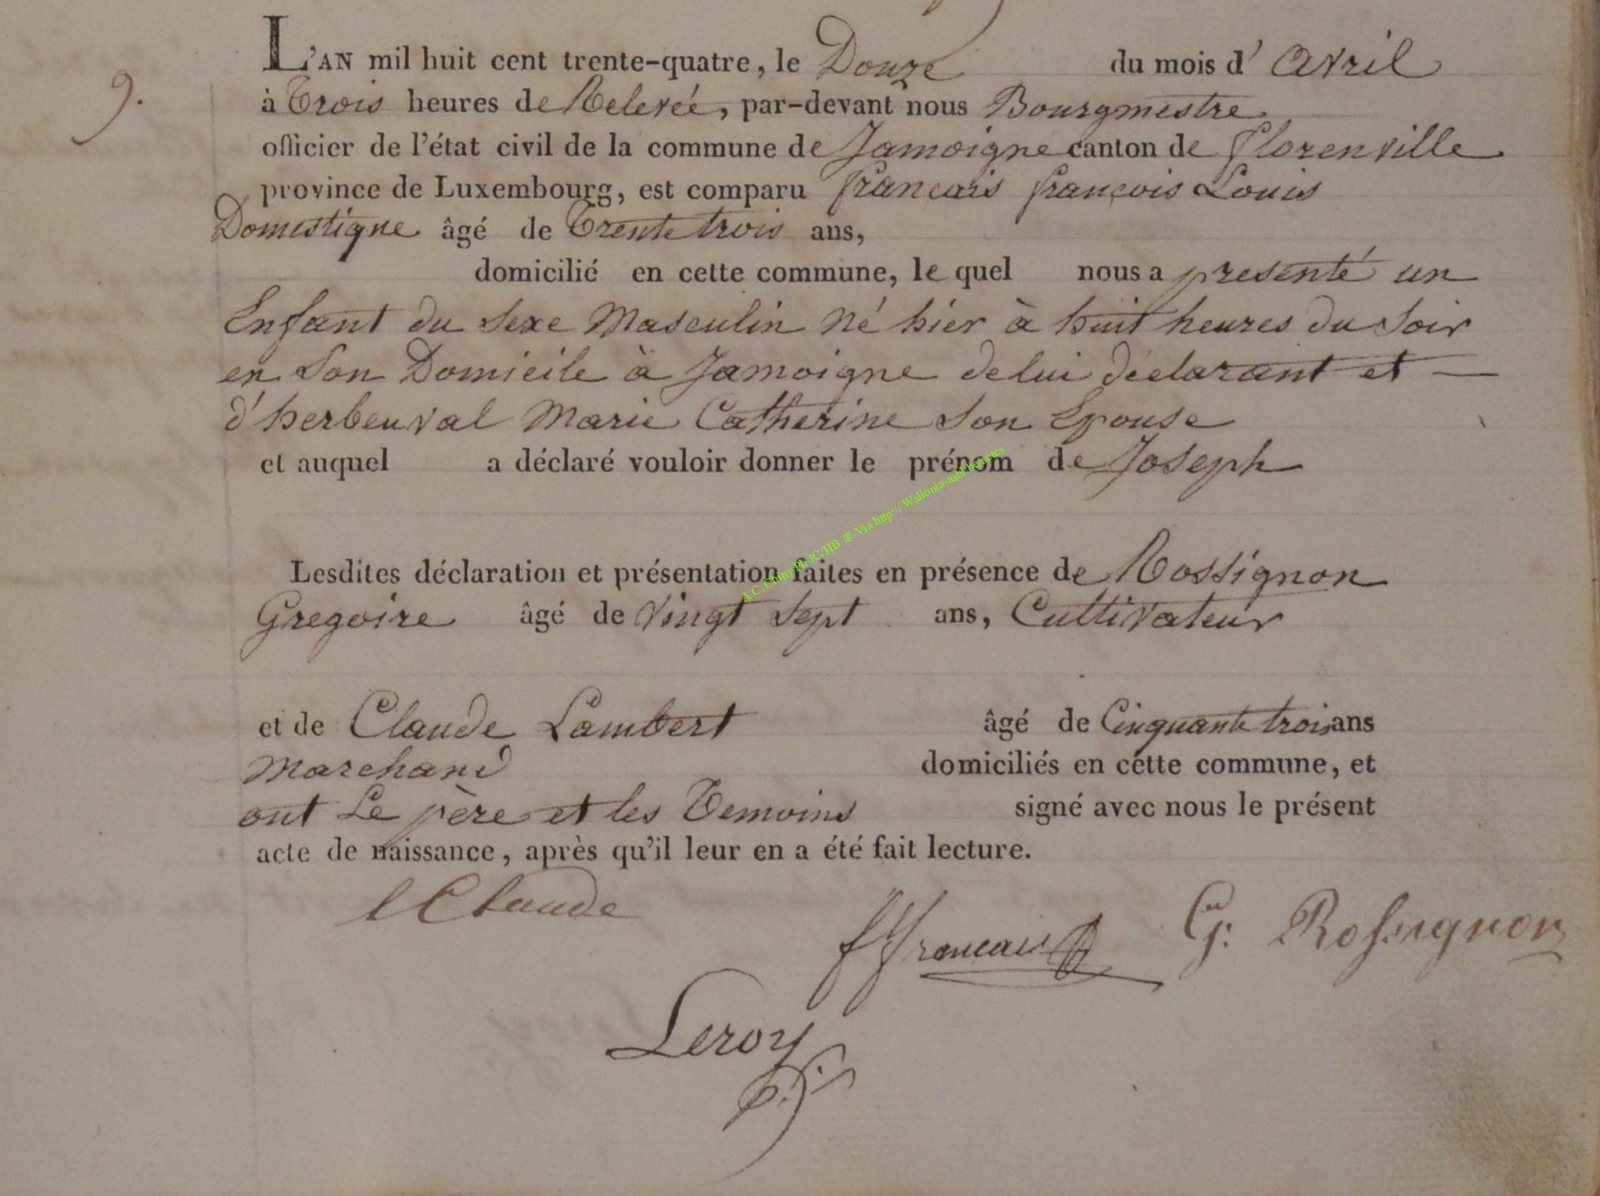 9.
L'AN mil huit cent trente-quatre, le Douze du mois d' Avril
à Trois heures de Relevée, par-devant nous Bourgmestre
officier de l'état civil de la commune de Jamoigne canton de florenville
province de Luxembourg, est comparu francais françois Louis
Domestique âgé de Trente trois ans,
domicilié en cette commune, le quel nous a presenté un
Enfant du Sexe Masculin Né hier à huit heures du Soir
en Son Domicile à Jamoigne de lui déclarant et —
d'herbeuval Marie Catherine Son Epouse
et auquel a déclaré vouloir donner le prénom de Joseph
Lesdites déclaration et présentation faites en présence de Rossignon
Gregoire âgé de Vingt Sept ans, Cultivateur
et de Claude Lambert âgé de Cinquante trois ans
Marchand domiciliés en cette commune, et
ont Le père et les Temoins signé avec nous le présent
acte de naissance, après qu'il leur en a été fait lecture.
l Claude
ff francais
G: Rossignon
Leroy